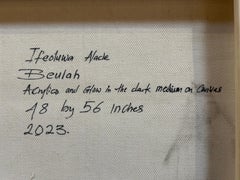 Ifeoluwa Alade
Beulah
Acrylics and Glow in the dark medium on Canvas
48 by 56 inches
2023.